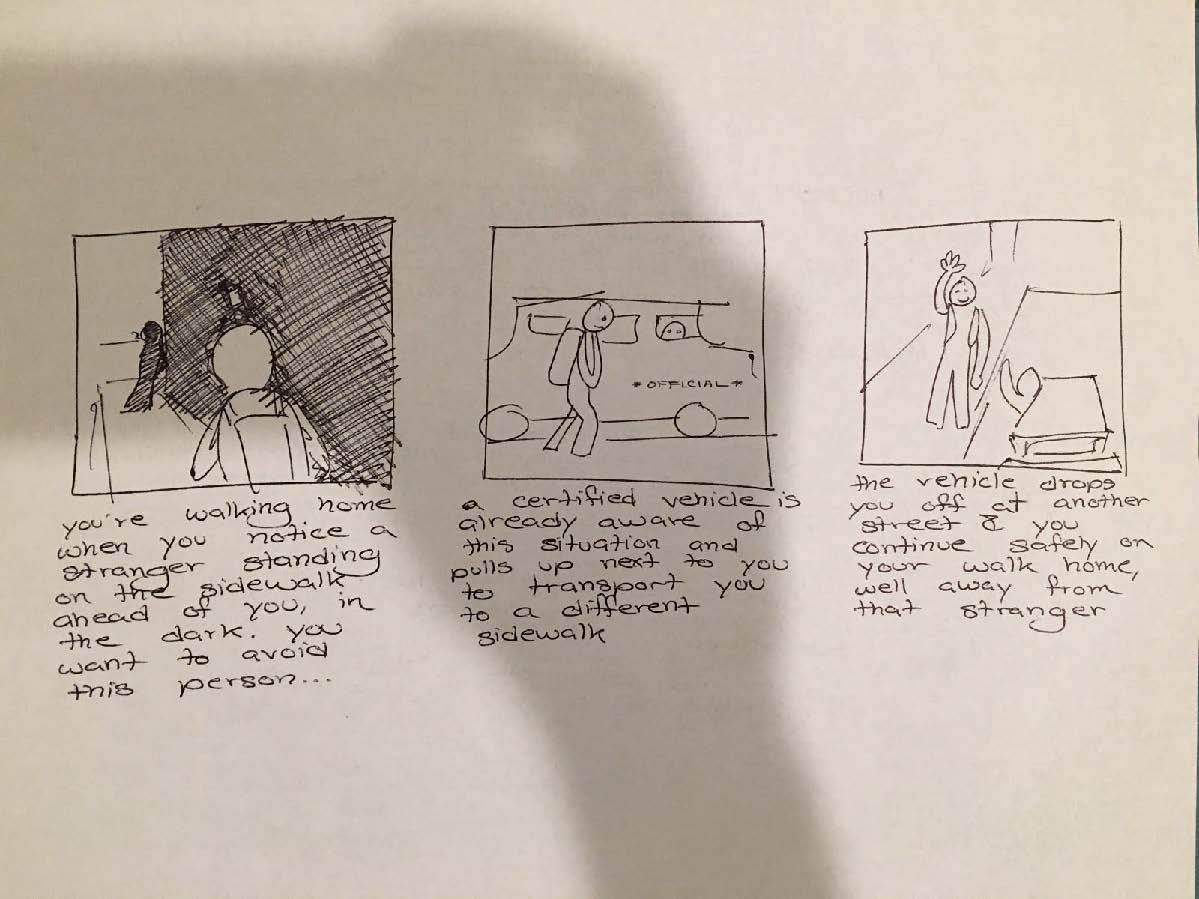 you're walking home
when you notice a
stranger standing
on the sidewalk
ahead of you, in
the dark. you
want to avoid
this person...
* OFFICIAL *
a certified vehicle is
already aware of
this situation and
pulls up next to you
to transport you
to a different
sidewalk
the vehicle drops
you off at another
street & you
continue safely on
your walk home,
well away from
that stranger